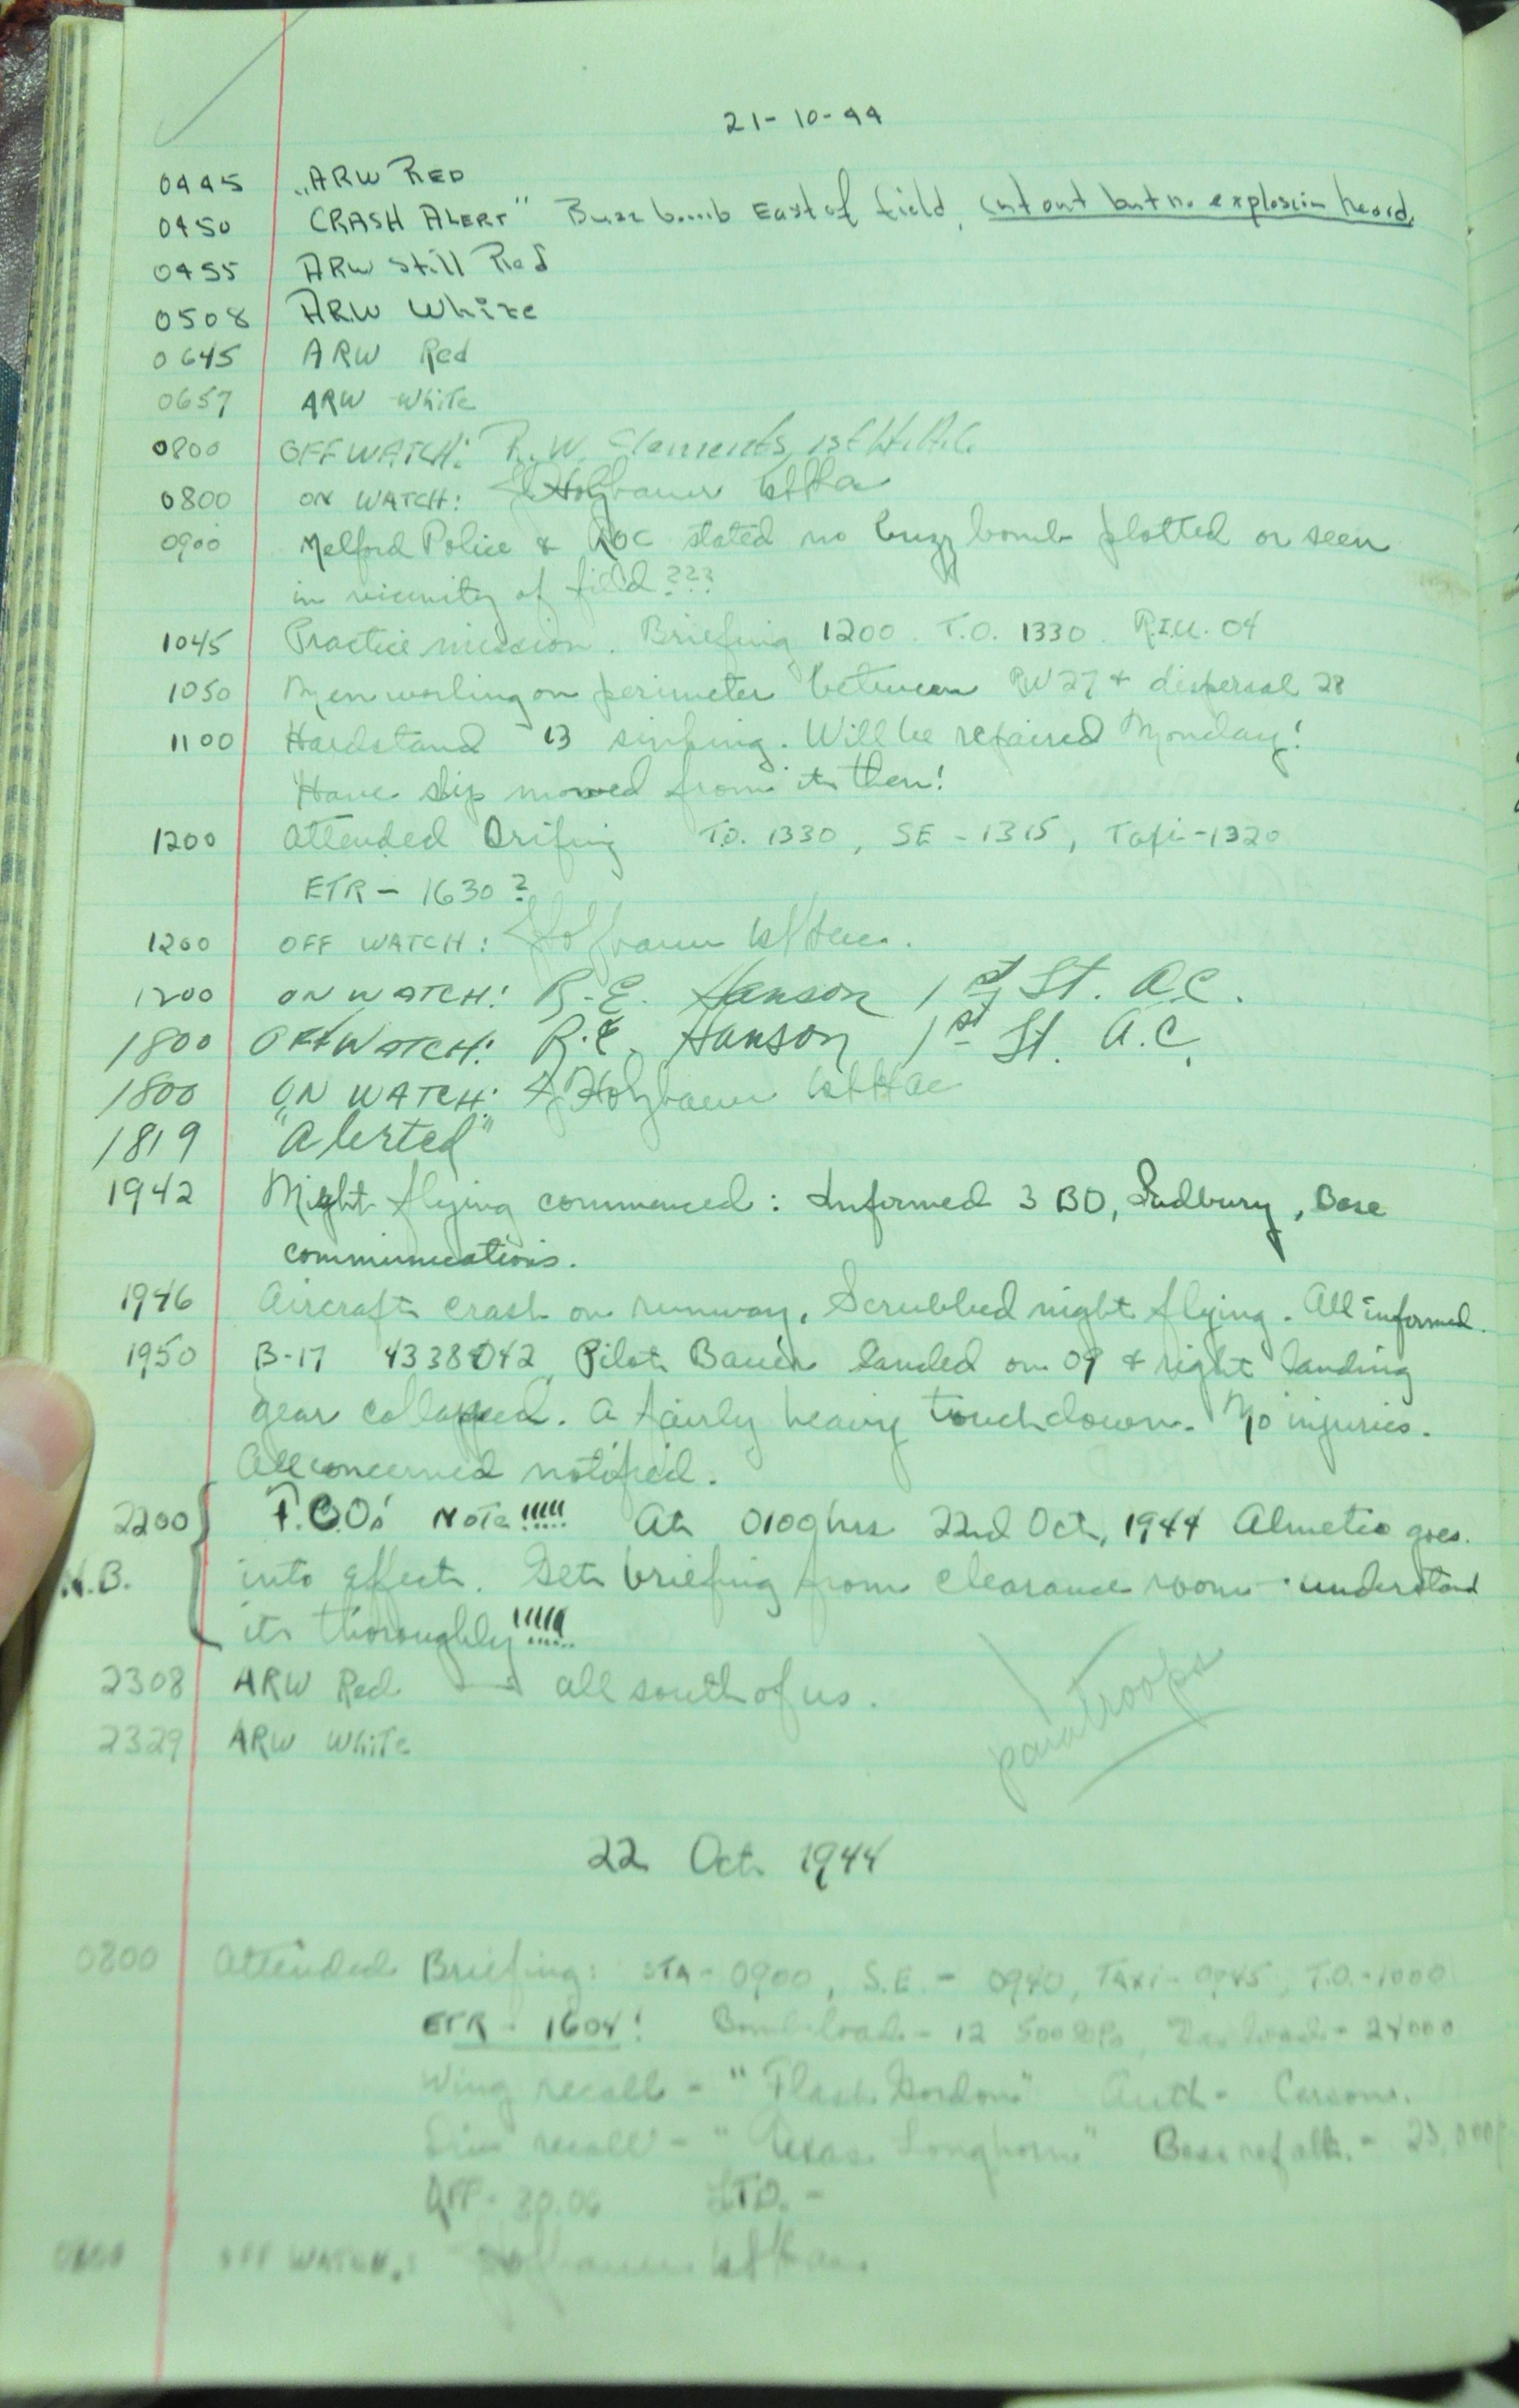 21-10-44
0445 "ARW RED
0450 CRASH ALERT" Buzz bomb East of field, cut out but no explosion heard.
0455 ARW still Red
0508 ARW White
0645 ARW Red
0657 ARW White
0800 OFF WATCH: R.W. Clements, 1st Lt. A.C.
0800 ON WATCH: Holzbauer 1st Lt ac
0900 Melford Police & ROC stated no buzz bomb plotted or seen
in vicinity of field???
1045 Practice mission. Briefing 1200. T.O. 1330. R.I.U. 04
1050 Men working on perimeter between RW 27 & dispersal 28
1100 Hardstand 13 sinking. Will be repaired Monday!
Have ship moved from it then!
1200 Attended Brifing T.O. 1330, SE - 1315, Taxi - 1320
ETR - 1630?
1200 OFF WATCH: Holzbauer 1st Lt ac.
1200 ON WATCH: R.E. Hanson 1st Lt. A.C.
1800 OFF WATCH: R.E. Hanson 1st Lt. A.C.
1800 ON WATCH: Holzbauer 1st Lt ac
1819 "Alerted"
1942 Night flying commenced: Informed 3 BD, Sudbury, Base
communications.
1946 Aircraft crash on runway. Scrubbed night flying. All informed.
1950 B-17 4338042 Pilot Bauer landed on 09 & right landing
gear collapsed. A fairly heavy touchdown. No injuries.
All concerned notified.
2200 F.C.O's NOTE!!!!! At 0100 hrs 22nd Oct, 1944 goes
N.B. into effect. Get briefing from clearance room - understand
it thoroughly!!!!!
2308 ARW Red all south of us.
paratroops
2329 ARW White
22 Oct 1944
0800 Attended Briefing: STA - 0900, S.E. - 0940, Taxi - 0945, T.O. - 1000
ETR - 1604! Bomb load - 12 500 - 24000
Wing recall - "Flash Gordon" Auth - Carsons.
recall - "Texas Longhorn" Base ref alt. - 23,000
30.06
OFF WATCH: Holzbauer 1st Lt